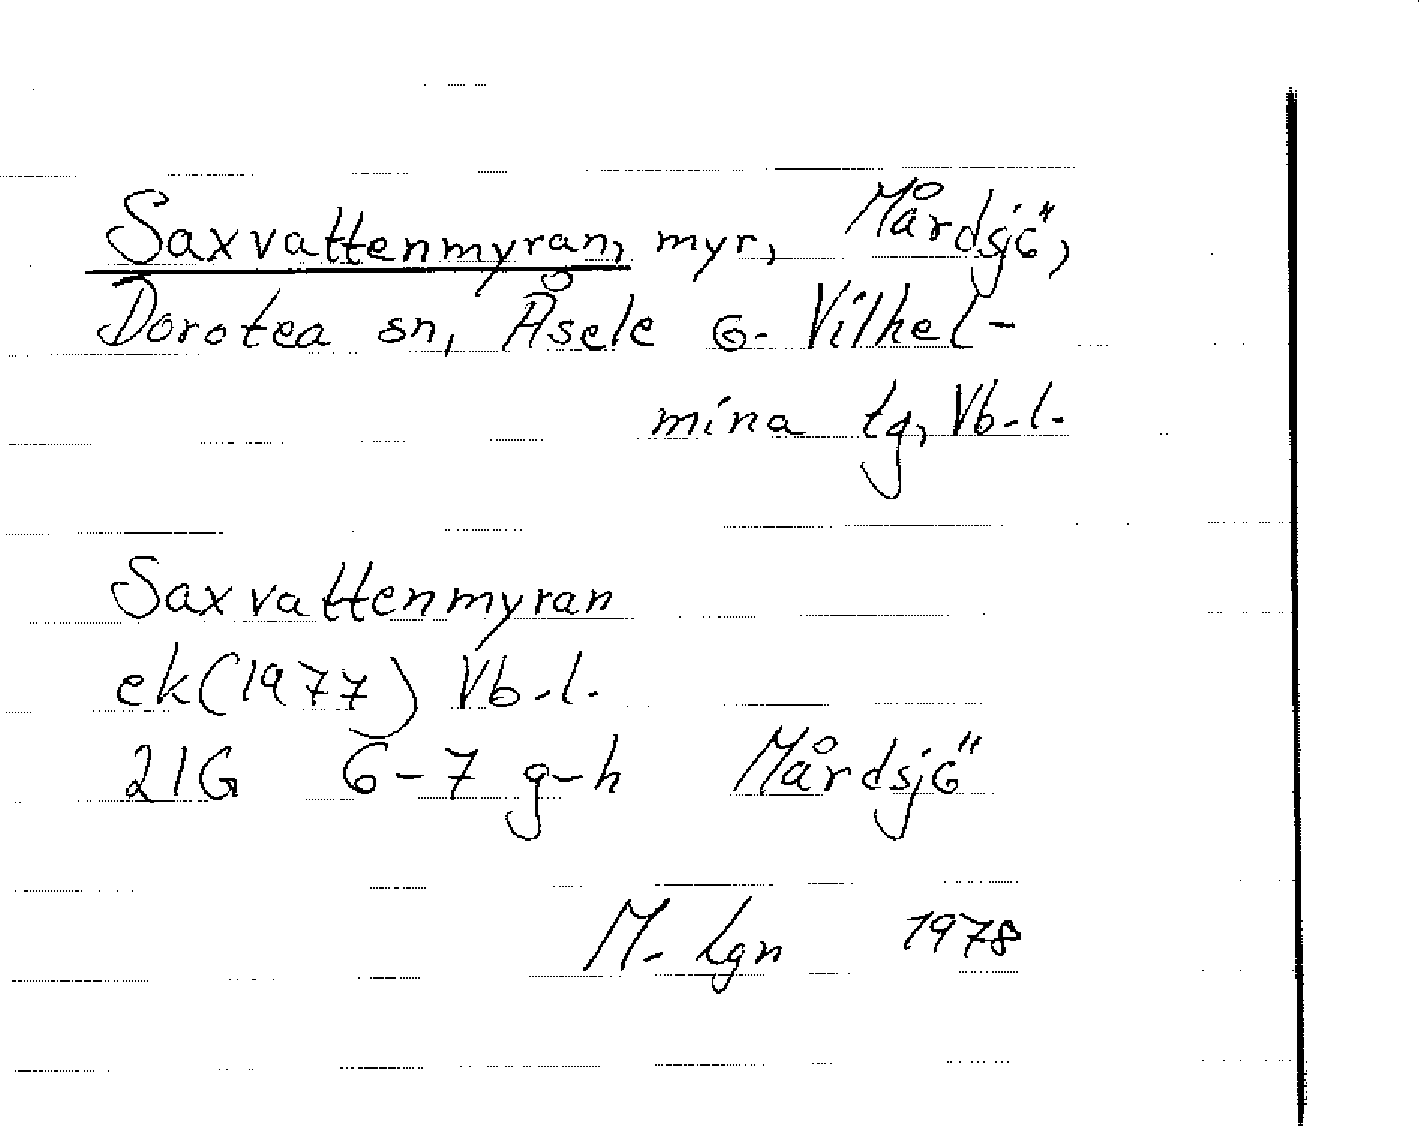 Saxvattenmyran, myr, Mårdsjö,
Dorotea sn, Åsele o. Vilhel-
mina tg, Vb.l.
Saxvattenmyran
ek(1977) Vb.l.
21G 6-7 g-h Mårdsjö
M. Lgn 1978